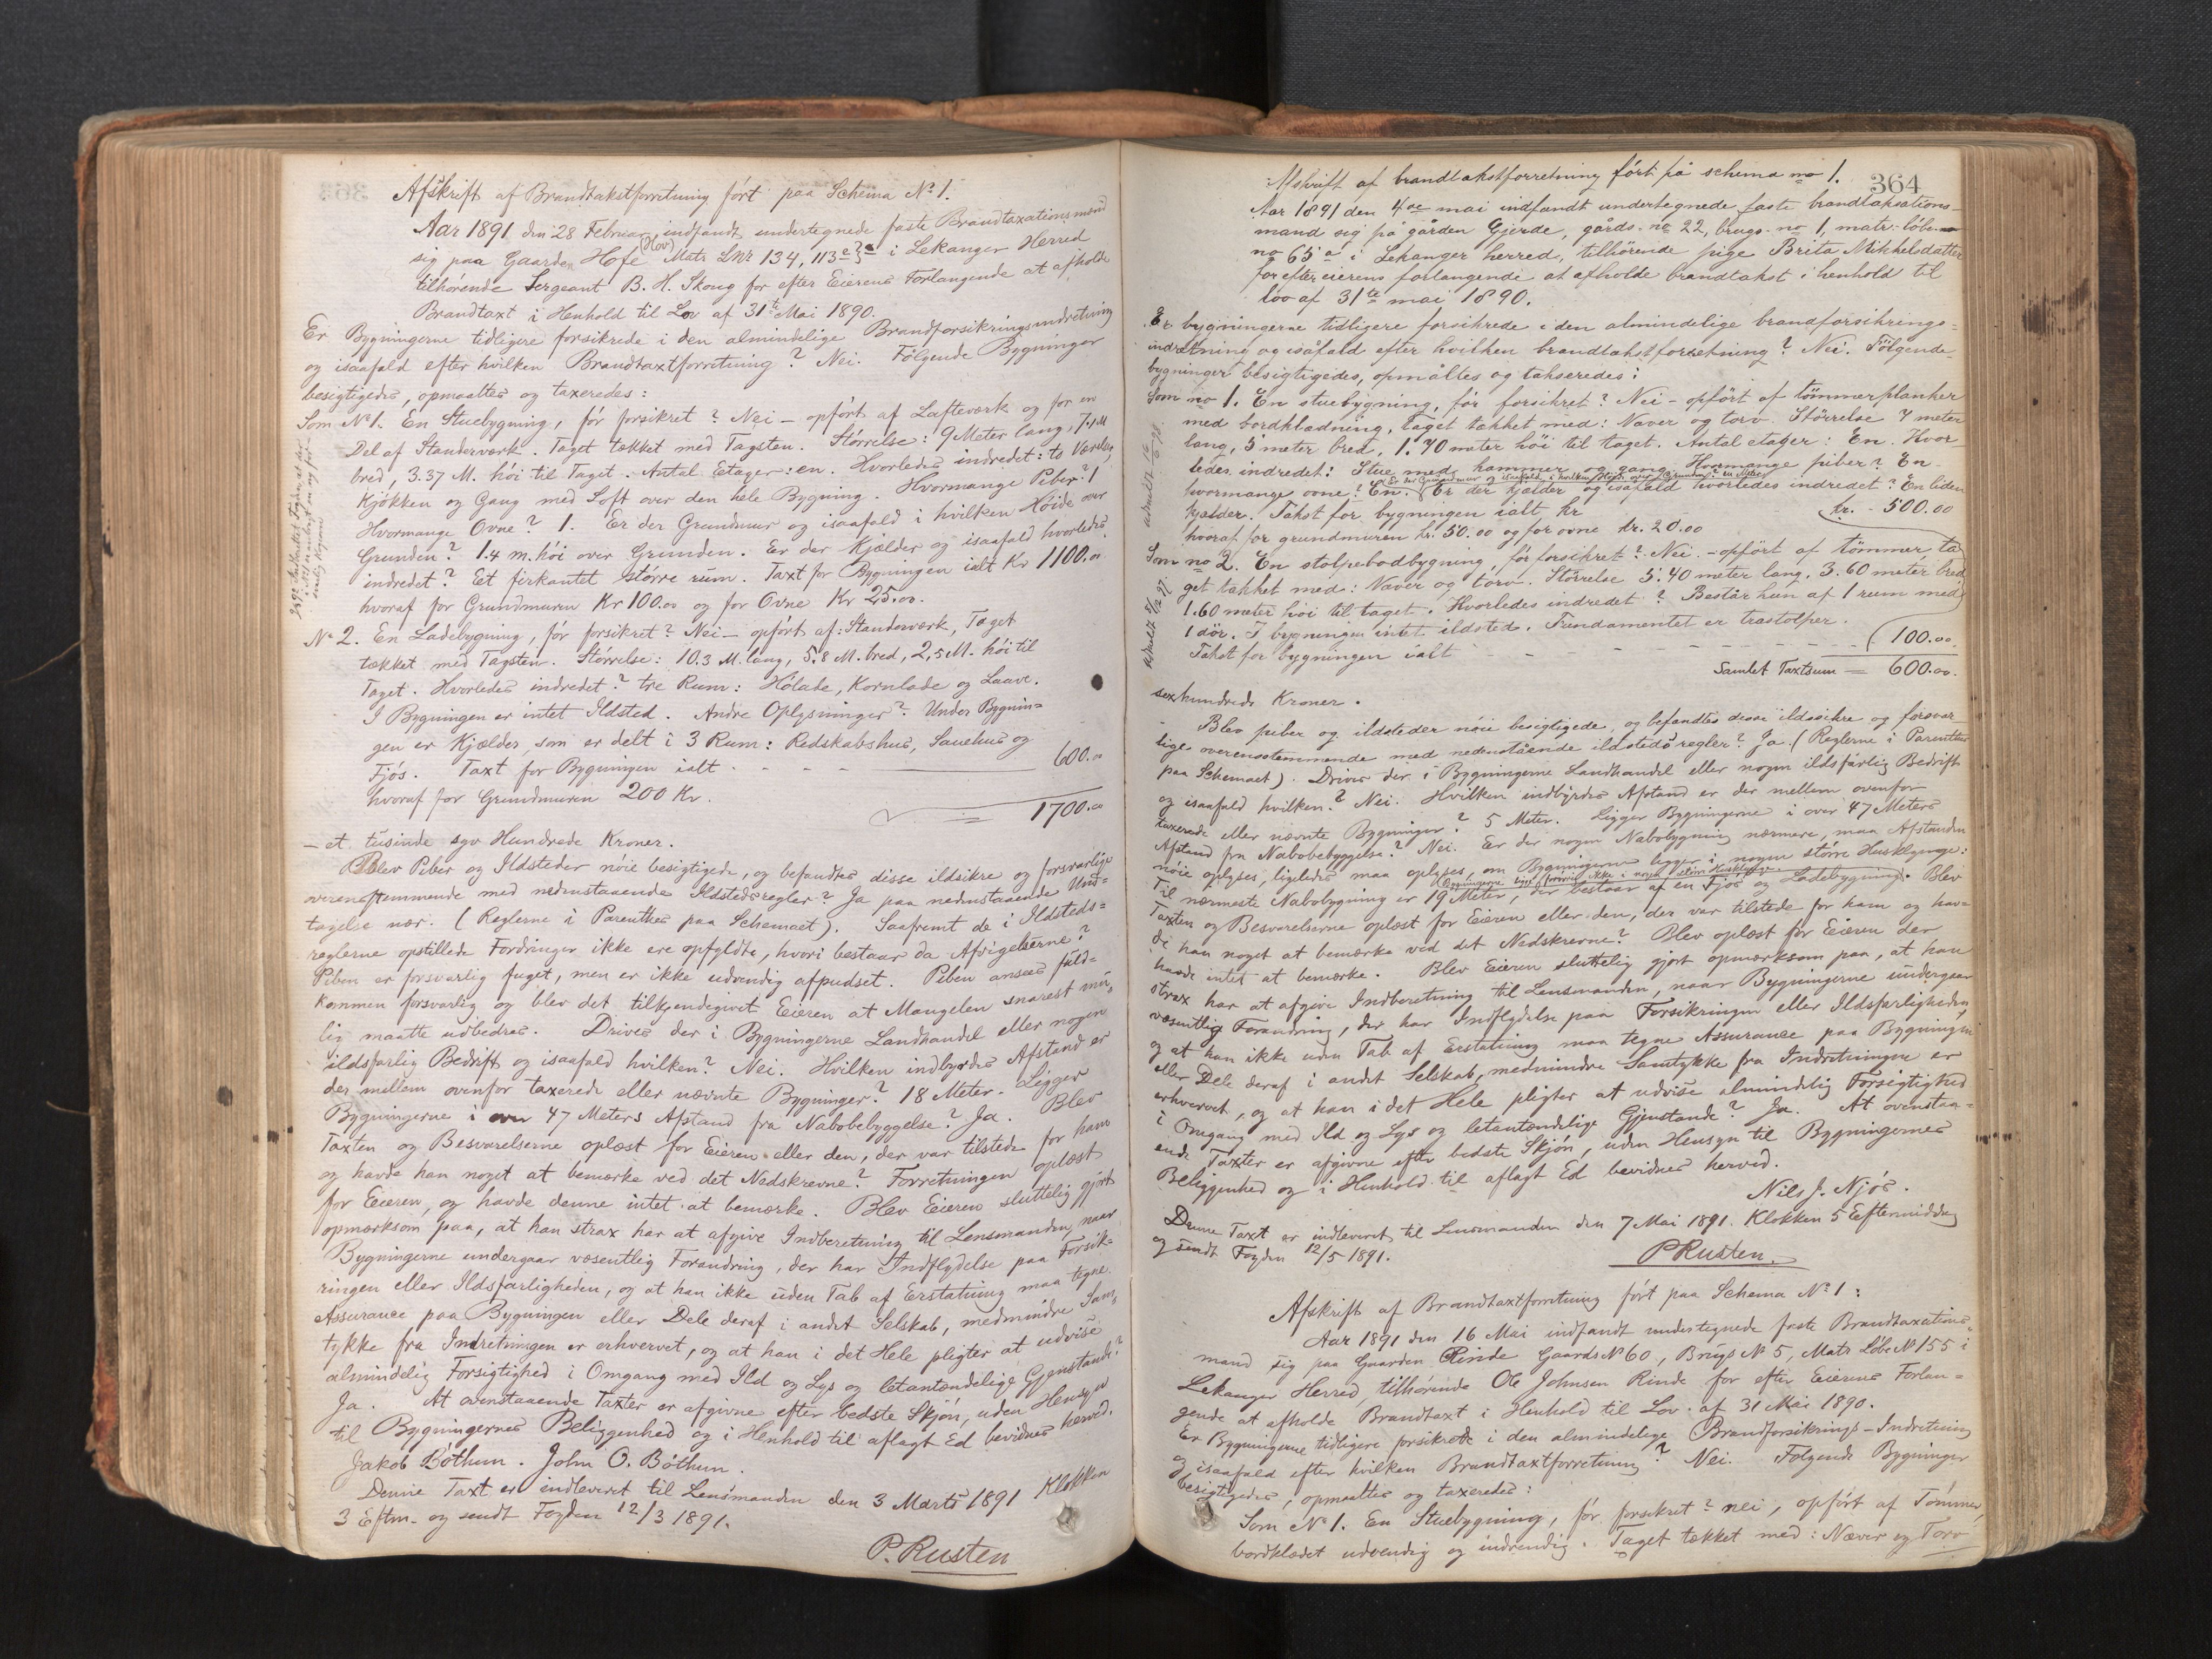 Afskrift af Brandtakstforretning ført paa Schema No 1.
Aar 1891 den 28 Februar indfandt undertegnede faste Brandtaxationsmænd
sig paa Gaarden Hofe (Hov) Matr LNr 134, 113 i Lekanger Herred
tilhørende Sergeant B. H. Skoug for efter Eierens Forlangende at afholde
Brandtaxt i Henhold til Lov af 31te Mai 1890.
Er Bygningerne tidligere forsikrede i den almindelige Brandforsikringsindretning
og isaafald efter hvilken Brandtaxtforretning? Nei. Følgende Bygninger
besigtigedes, opmaaltes og taxeredes:
Som No 1. En Stuebygning, før forsikret? Nei — opført af Lafteværk og for en
Del af Standerværk. Taget tækket med Tagsten. Størrelse: 9 Meter lang, 7.1 M
bred, 3.37 M. høi til Taget. Antal Etager: en. Hvorledes indredet: to Værelser
Kjøkken og Gang med Loft over den hele Bygning. Hvormange Piber? 1
Hvormange Ovne? 1. Er der Grundmur og isaafald i hvilken Høide over
Grunden? 1.4 m. høi over Grunden. Er der Kjælder og isaafald hvorledes
indredet? Et firkantet større rum. Taxt for Bygningen ialt Kr 1100.00
hvoraf for Grundmuren Kr 100.00 og for Ovne Kr 25.00.
No 2. En Ladebygning, før forsikret? Nei — opført af: Standerværk, Taget
tækket med Tagsten. Størrelse: 10.3 M. lang, 5.8 M. bred, 2,5 M. høi til
Taget. Hvorledes indredet? tre Rum: Hølade, Kornlade og Laave.
I Bygningen er intet Ildsted. Andre Oplysninger? Under Bygnin=
gen er Kjælder, som er delt i 3 Rum: Redskabshus, Sauehus og
Fjøs. Taxt for Bygningen ialt - - - 600.00
hvoraf for Grundmuren 200 Kr.
= 1700.00
— et tusinde syv Hundrede Kroner.
Blev Piber og Ildsteder nøie besigtigede, og befandtes disse ildsikre og forsvarlige
overensstemmende med nedenstaaende Ildstedsregler? Ja paa nedenstaaende Und=
tagelse nær. (Reglerne i Parenthes paa Schemaet). Saafremt de i Ildsteds=
reglerne opstillede Fordringer ikke ere opfyldte, hvori bestaar da Afvigelserne?
Piben er forsvarlig fuget, men er ikke udvendig afpudset. Piben ansees fuld=
kommen forsvarlig og blev det tilkjendegivet Eieren at Mangelen snarest mu=
lig maatte udbedres. Drives der i Bygningerne Landhandel eller nogen
ildsfarlig Bedrift og isaafald hvilken? Nei. Hvilken indbyrdes Afstand er
der mellem ovenfor taxerede eller nævnte Bygninger? 18 Meter. Ligger
Bygningerne i over 47 Meters Afstand fra Nabobebyggelse? Ja. Blev
Taxten og Besvarelserne oplæst for Eieren eller den, der var tilstede for ham
og havde han noget at bemærke ved det Nedskrevne? Forretningen oplæst
for Eieren, og havde denne intet at bemærke. Blev Eieren sluttelig gjort
opmærksom paa, at han strax har at afgive Indberetning til Lensmanden, naar
Bygningerne undergaar væsentlig Forandring, der har Indflydelse paa Forsik=
ringen eller Ildsfarligheden, og at han ikke uden Tab af Erstatning maa tegne
Assurance paa Bygningen eller Dele deraf i andet Selskab, medmindre Sam=
tykke fra Indretningen er erhvervet, og at han i det Hele pligter at udvise
almindelig Forsigtighed i Omgang med Ild og Lys og letantændelige Gjenstande?
Ja. At ovenstaaende Taxter er afgivne efter bedste Skjøn, uden Hensyn
til Bygningernes Beliggenhed og i Henhold til aflagt Ed bevidnes herved.
Jakob Bøthun. John O. Bøthun.
Denne Taxt er indleveret til Lensmanden den 3 Marts 1891 Klokken
3 Eftm. og sendt Fogden 12/3 1891.
P. Rusten
364
Afskrift af brandtakstforretning ført på schema no 1.
Aar 1891 den 4de mai indfandt undertegnede faste brandtaksations-
mand sig på gården Gjerde, gårds-no 22, brugs-no 1, matr.-løbe-
no 65 a i Lekanger herred, tilhørende pige Brita Mikkelsdatter
for efter eierens forlangende at afholde brandtakst i henhold til
lov af 31te mai 1890.
Er bygningerne tidligere forsikrede i den almindelige brandforsikrings=
indretning og isåfald efter hvilken brandtakstforretning? Nei. Følgende
bygninger besigtigedes, opmåltes og takseredes:
Som no 1. En stuebygning, før forsikret? Nei - opført af tømmerplanker
med bordklædning. Taget tækket med: Næver og torv. Størrelse 7 meter
lang, 5 meter bred, 1.70 meter høi til taget. Antal etager: En. Hvor-
ledes indredet: Stue med kammer og gang. Hvormange piber? En
hvormange ovne? En. Er der kjælder og isåfald hvorledes indredet? En liden
kjælder. Takst for bygningen ialt kr kr. - 500.00
hvoraf for grundmuren kr. 50.00 og for ovne kr. 20.00
Som no 2. En stolpebodbygning, før forsikret? Nei. - opført af tømmer, ta-
get tækket med: Næver og torv. Størrelse 5.40 meter lang, 3.60 meter bred,
1.60 meter høi til taget. Hvorledes indredet? Består kun af 1 rum med
1 dør. I bygningen intet ildsted. Fundamentet er træstolper.
Takst for bygningen ialt - - - - - - - - - 100.00
Samlet Taxtsum = 600.00.
sexhundrede Kroner.
Blev piber og ildsteder nøie besigtigede, og befandtes disse ildssikre og forsvar-
lige overensstemmende med nedenstående ildstedsregler? Ja. (Reglerne i Parenthes
paa Schemaet). Drives der i Bygningerne Landhandel eller nogen ildsfarlig Bedrift
og isaafald hvilken? Nei. Hvilken indbyrdes Afstand er der mellem ovenfor
taxerede eller nævnte Bygninger? 5 Meter. Ligger Bygningerne i over 47 Meters
Afstand fra Nabobebyggelse? Nei. Er der nogen Nabobygning nærmere, maa Afstanden
nøie oplyses, ligeledes maa oplyses, om Bygningerne ligger i nogen større Husklynge:
Til nærmeste Nabobygning er 19 Meter, der bestaar af en Fjøs og Ladebygning. Blev
Taxten og Besvarelserne oplæst for Eieren eller den, der var tilstede for ham og hav=
de han noget at bemærke ved det Nedskrevne? Blev oplæst for Eieren der
havde intet at bemærke. Blev Eieren sluttelig gjort opmærksom paa, at han
strax har at afgive Indberetning til Lensmanden, naar Bygningerne undergaar
væsentlig Forandring, der har Indflydelse paa Forsikringen eller Ildsfarligheden,
og at han ikke uden Tab af Erstatning maa tegne Assurance paa Bygningen
eller Dele deraf i andet Selskab, medmindre Samtykke fra Indretningen er
erhvervet, og at han i det Hele pligter at udvise almindelig Forsigtighed
i Omgang med Ild og Lys og letantændelige Gjenstande? Ja. At ovenstaa=
ende Taxter er afgivne efter bedste Skjøn, uden Hensyn til Bygningernes
Beliggenhed og i Henhold til aflagt Ed bevidnes herved.
Nils J. Njøs.
Denne Taxt er indleveret til Lensmanden den 7 Mai 1891. Klokken 5 Eftermiddag
og sendt Fogden 12/5 1891.
P Rusten.
Afskrift af Brandtaxtforretning ført paa Schema No 1:
Aar 1891 den 16 Mai indfandt undertegnede faste Brandtaxations=
mand sig paa Gaarden Rinde Gaards No 60, Brugs No 5, Matr Løbe No 155 i
Lekanger Herred, tilhørende Ole Johnsen Rinde for efter Eierens Forlan=
gende at afholde Brandtaxt i Henhold til Lov af 31 Mai 1890.
Er Bygningerne tidligere forsikrede i den almindelige Brandforsikrings-Indretning
og isaafald efter hvilken Brandtaxtforretning? Nei. Følgende Bygninger
besigtigedes, opmaaltes og taxeredes:
Som No 1. En Stuebygning, før forsikret? nei, opført af Tømmer,
bordklædet udvendig og indvendig. Taget tækket med: Næver og Torv